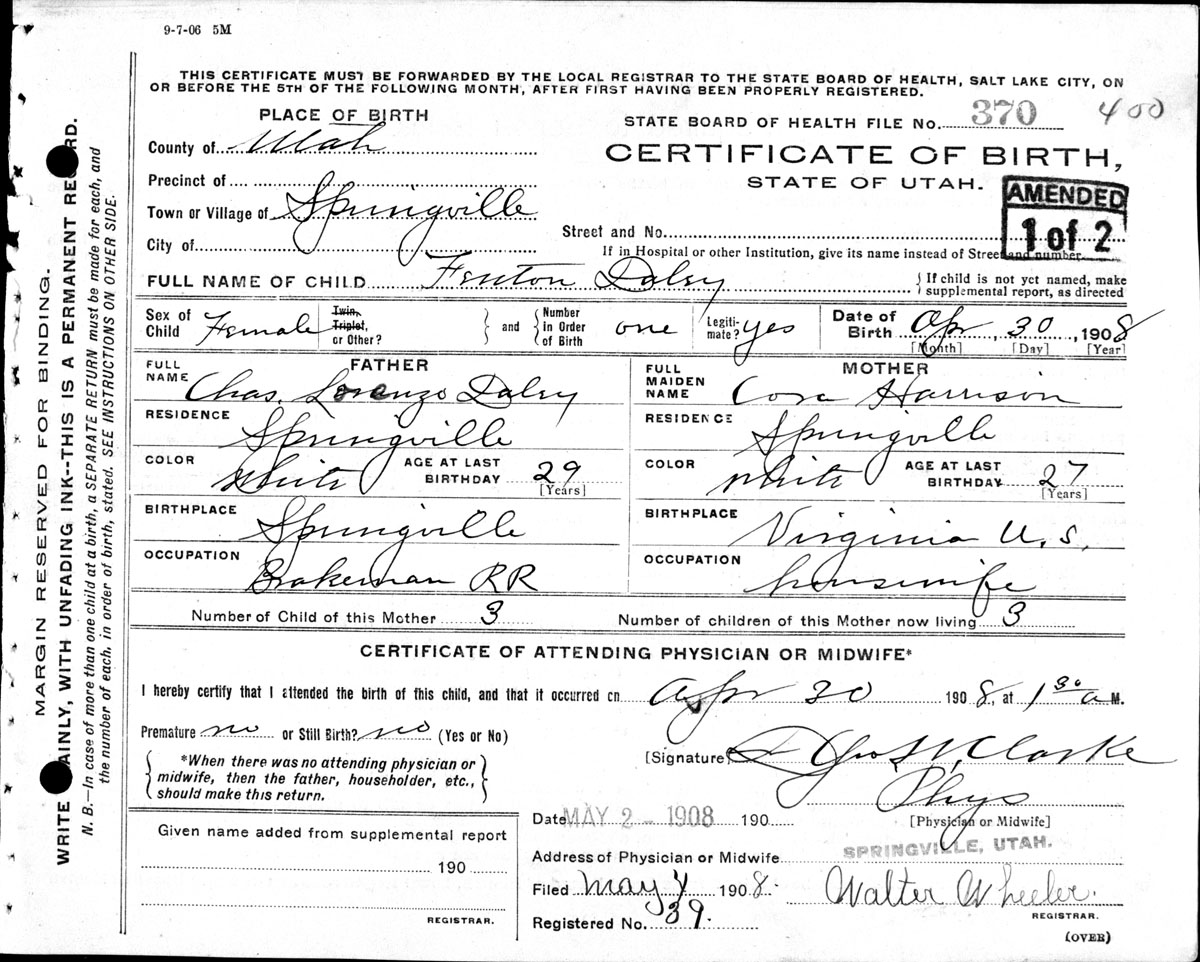 9-7-06 5M
THIS CERTIFICATE MUST BE FORWARDED BY THE LOCAL REGISTRAR TO THE STATE BOARD OF HEALTH, SALT LAKE CITY, ON
OR BEFORE THE 5TH OF THE FOLLOWING MONTH, AFTER FIRST HAVING BEEN PROPERLY REGISTERED.
PLACE OF BIRTH
STATE BOARD OF HEALTH FILE No. 370 400
County of Utah
CERTIFICATE OF BIRTH,
STATE OF UTAH.
Precinct of
AMENDED
1 of 2
Town or Village of Springville
Street and No.
City of
If in Hospital or other Institution, give its name instead of Street and number.
FULL NAME OF CHILD Fenton Daley
If child is not yet named, make
supplemental report, as directed
Sex of Child Female
Twin, Triplet, or Other?
and
Number in Order of Birth one
Legiti-mate? yes
Date of Birth Apr, 30, 1908
[Month] [Day] [Year]
FATHER
FULL NAME Chas. Lorenzo Daley
MOTHER
FULL MAIDEN NAME Cora Harrison
RESIDENCE Springville
RESIDENCE Springville
COLOR White AGE AT LAST BIRTHDAY 29
[Years]
COLOR White AGE AT LAST BIRTHDAY 27
[Years]
BIRTHPLACE Springville
BIRTHPLACE Virginia U.S.
OCCUPATION Brakeman RR
OCCUPATION housewife
Number of Child of this Mother 3
Number of children of this Mother now living 3
CERTIFICATE OF ATTENDING PHYSICIAN OR MIDWIFE*
I hereby certify that I attended the birth of this child, and that it occurred on Apr 30 1908, at 1 30 a M.
Premature no or Still Birth? no (Yes or No)
*When there was no attending physician or
midwife, then the father, householder, etc.,
should make this return.
[Signature] Geo. W. Clarke
Phys
[Physician or Midwife]
Given name added from supplemental report
190
REGISTRAR.
Date MAY 2 - 1908 190
Address of Physician or Midwife SPRINGVILLE, UTAH.
Filed May 4 1908.
Walter Wheeler.
REGISTRAR.
Registered No. 39.
(OVER)
MARGIN RESERVED FOR BINDING.
WRITE AINLY, WITH UNFADING INK--THIS IS A PERMANENT RE RD.
N. B.—In case of more than one child at a birth, a SEPARATE RETURN must be made for each, and
the number of each, in order of birth, stated. SEE INSTRUCTIONS ON OTHER SIDE.